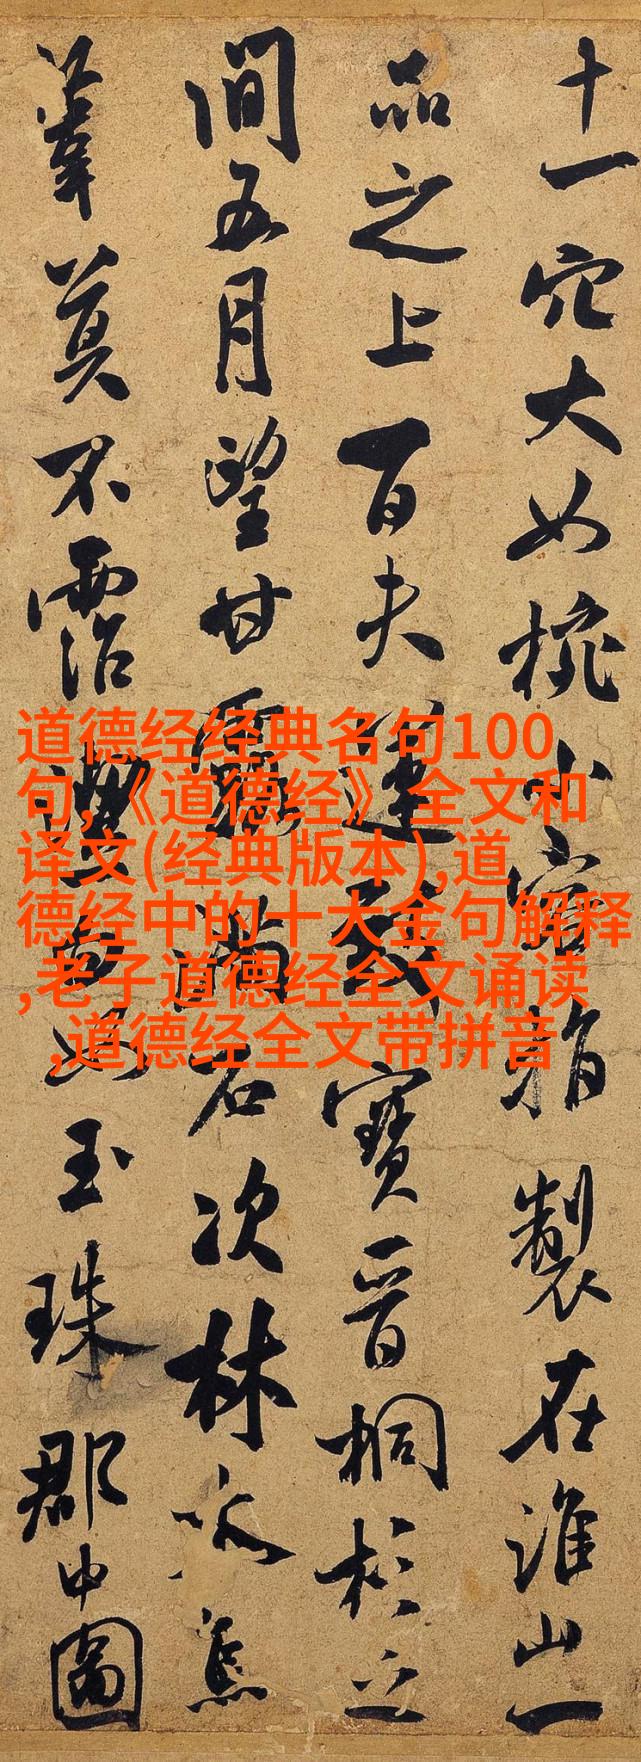 十一穴大如椀小容指製在淮山一
品之上百夫運致寶晉桐杉之
間五月望甘露滿石次林木焦
葦莫不霑潔白如玉珠郡中圖
道德经经典名句100
句,《道德经》全文和
译文(经典版本),道
德经中的十大金句解释
,老子道德经全文诵读
,道德经全文带拼音